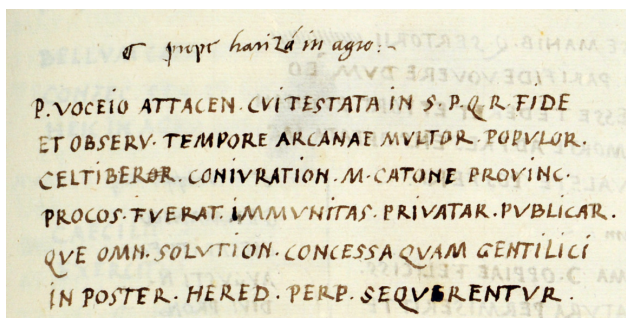 σ prope harizá in agro.-
P. VOCEIO ATTACEN. CVI TESTATA IN S. P. Q. R. FIDE
ET OBSERV. TEMPORE ARCANAE MVLTOR. POPVLOR.
CELTIBEROR. CONIVRATION. M. CATONE PROVINC.
PROCOS. FVERAT. IMMVNITAS. PRIVATAR. PVBLICAR.
QVE OMN. SOLVTION. CONCESSA QVAM GENTILICI
IN POSTER. HERED. PERP. SEQVERENTVR.